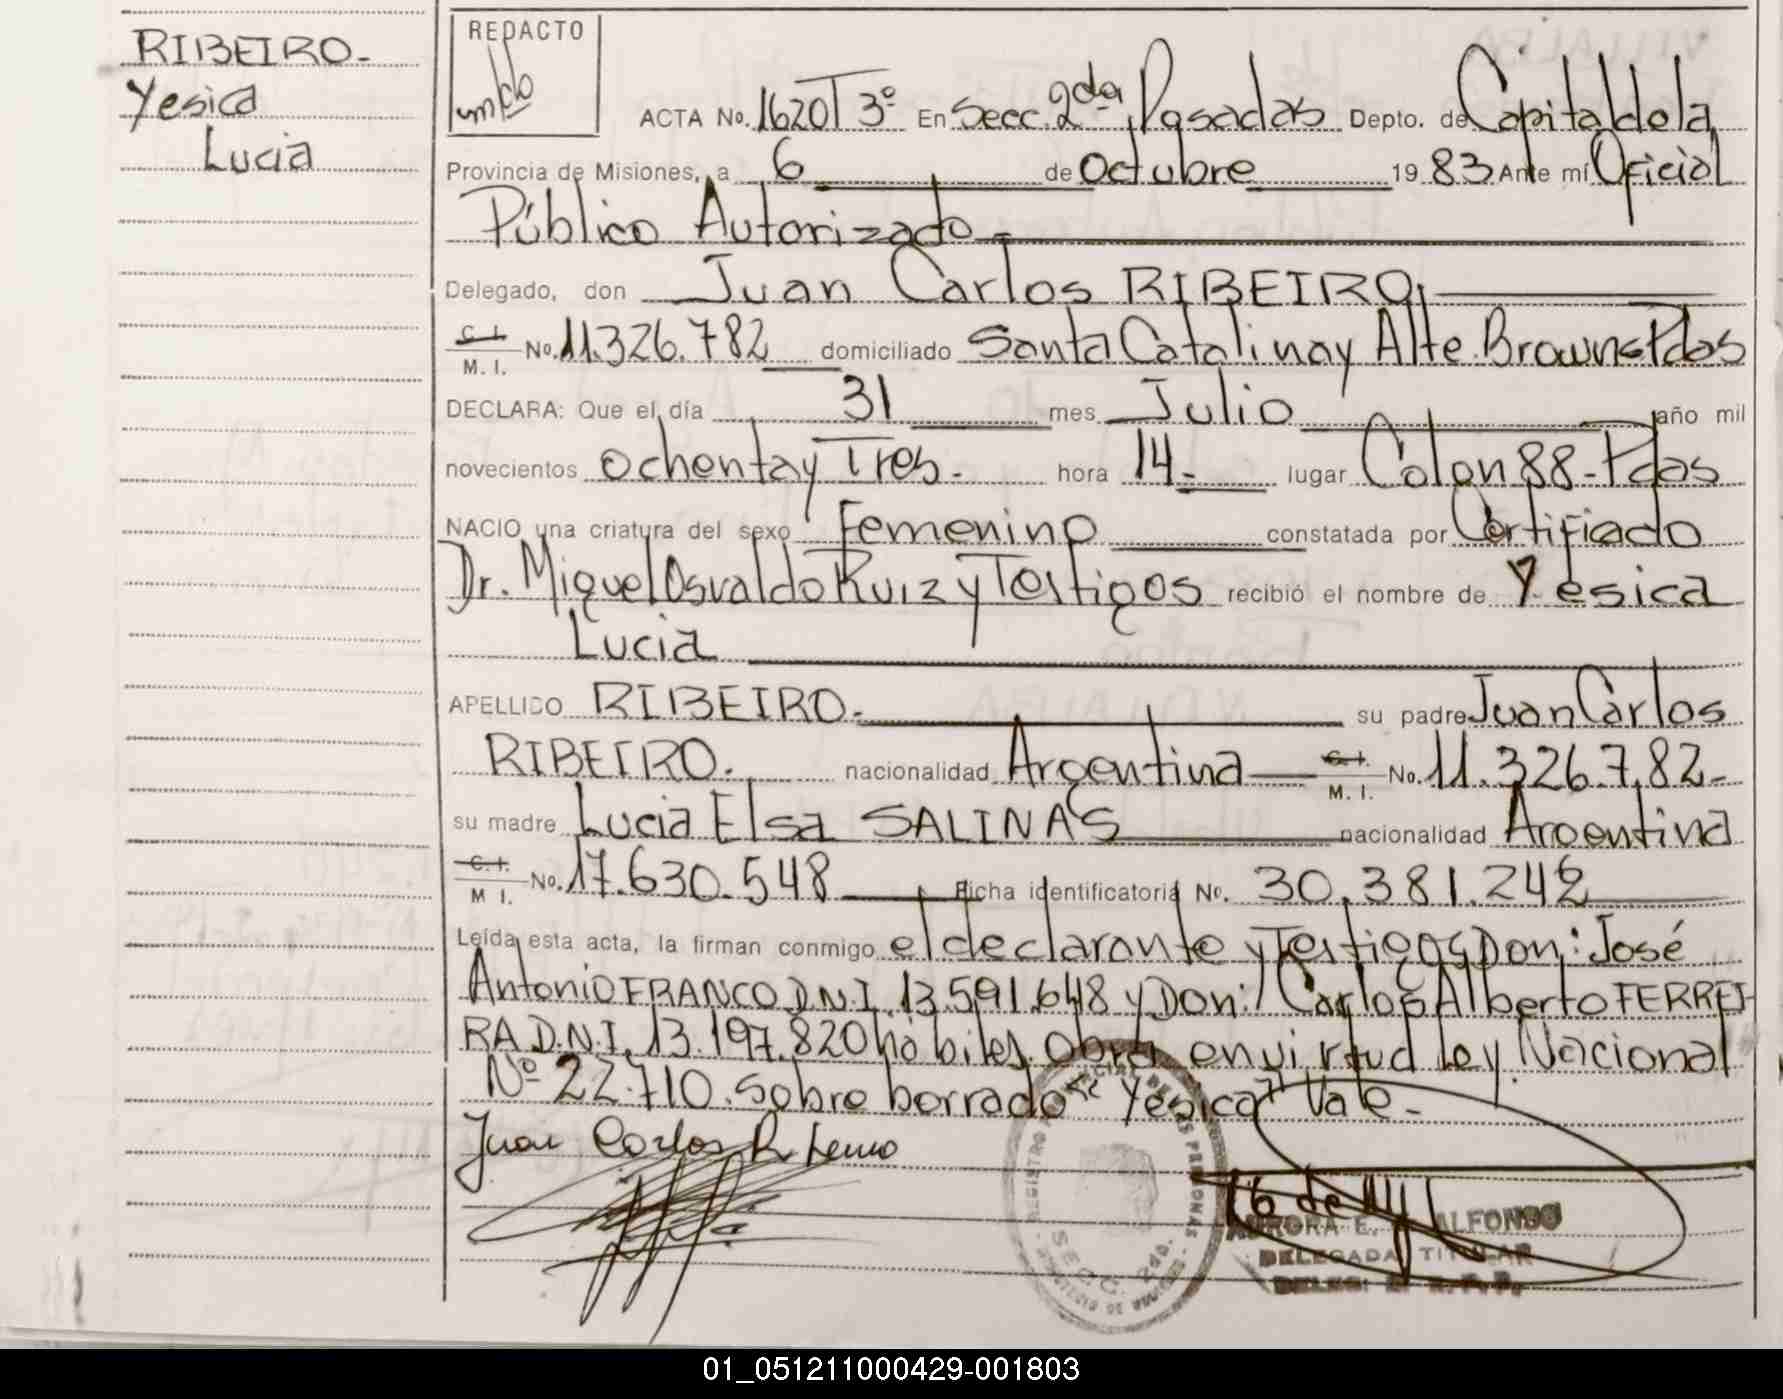 RIBEIRO.
Yesica
Lucia
REDACTO
ACTA No. 1620 T 3º En Secc. 2da, Posadas Depto. de Capital de la
Provincia de Misiones, a 6 de Octubre 19 83 Ante mí Oficial
Público Autorizado
Delegado, don Juan Carlos RIBEIRO,
C. I. M. I. No. 11.326.782 domiciliado Santa Catalina y Alte. Brown Pdas
DECLARA: Que el día 31 mes Julio año mil
novecientos Ochenta y Tres. hora 14. lugar Colon 88-Pdas
NACIO una criatura del sexo Femenino constatada por Certificado
Dr. Miguel Osvaldo Ruiz y Testigos recibió el nombre de Yesica
Lucia
APELLIDO RIBEIRO. su padre Juan Carlos
RIBEIRO. nacionalidad Argentina C. I. M. I. No. 11.326.782-
su madre Lucia Elsa SALINAS nacionalidad Argentina
C. I. M I. No. 17.630.548 Ficha identificatoria No. 30.381.242
Leída esta acta, la firman conmigo el declarante y Testigos Don: José
Antonio FRANCO D.N.I. 13.591.648 y Don: Carlos Alberto FERREI-
RA D.N.I. 13.197.820 hábiles. Obra en virtud ley Nacional
Nº 22.710. Sobre borrado "Yesica" Vale.
Juan Carlos Ribeiro
REGISTRO PROVINCIAL DE LAS PERSONAS
SECC. 2da.
AURORA E. ALFONSO
DELEGADA TITULAR
01_051211000429-001803